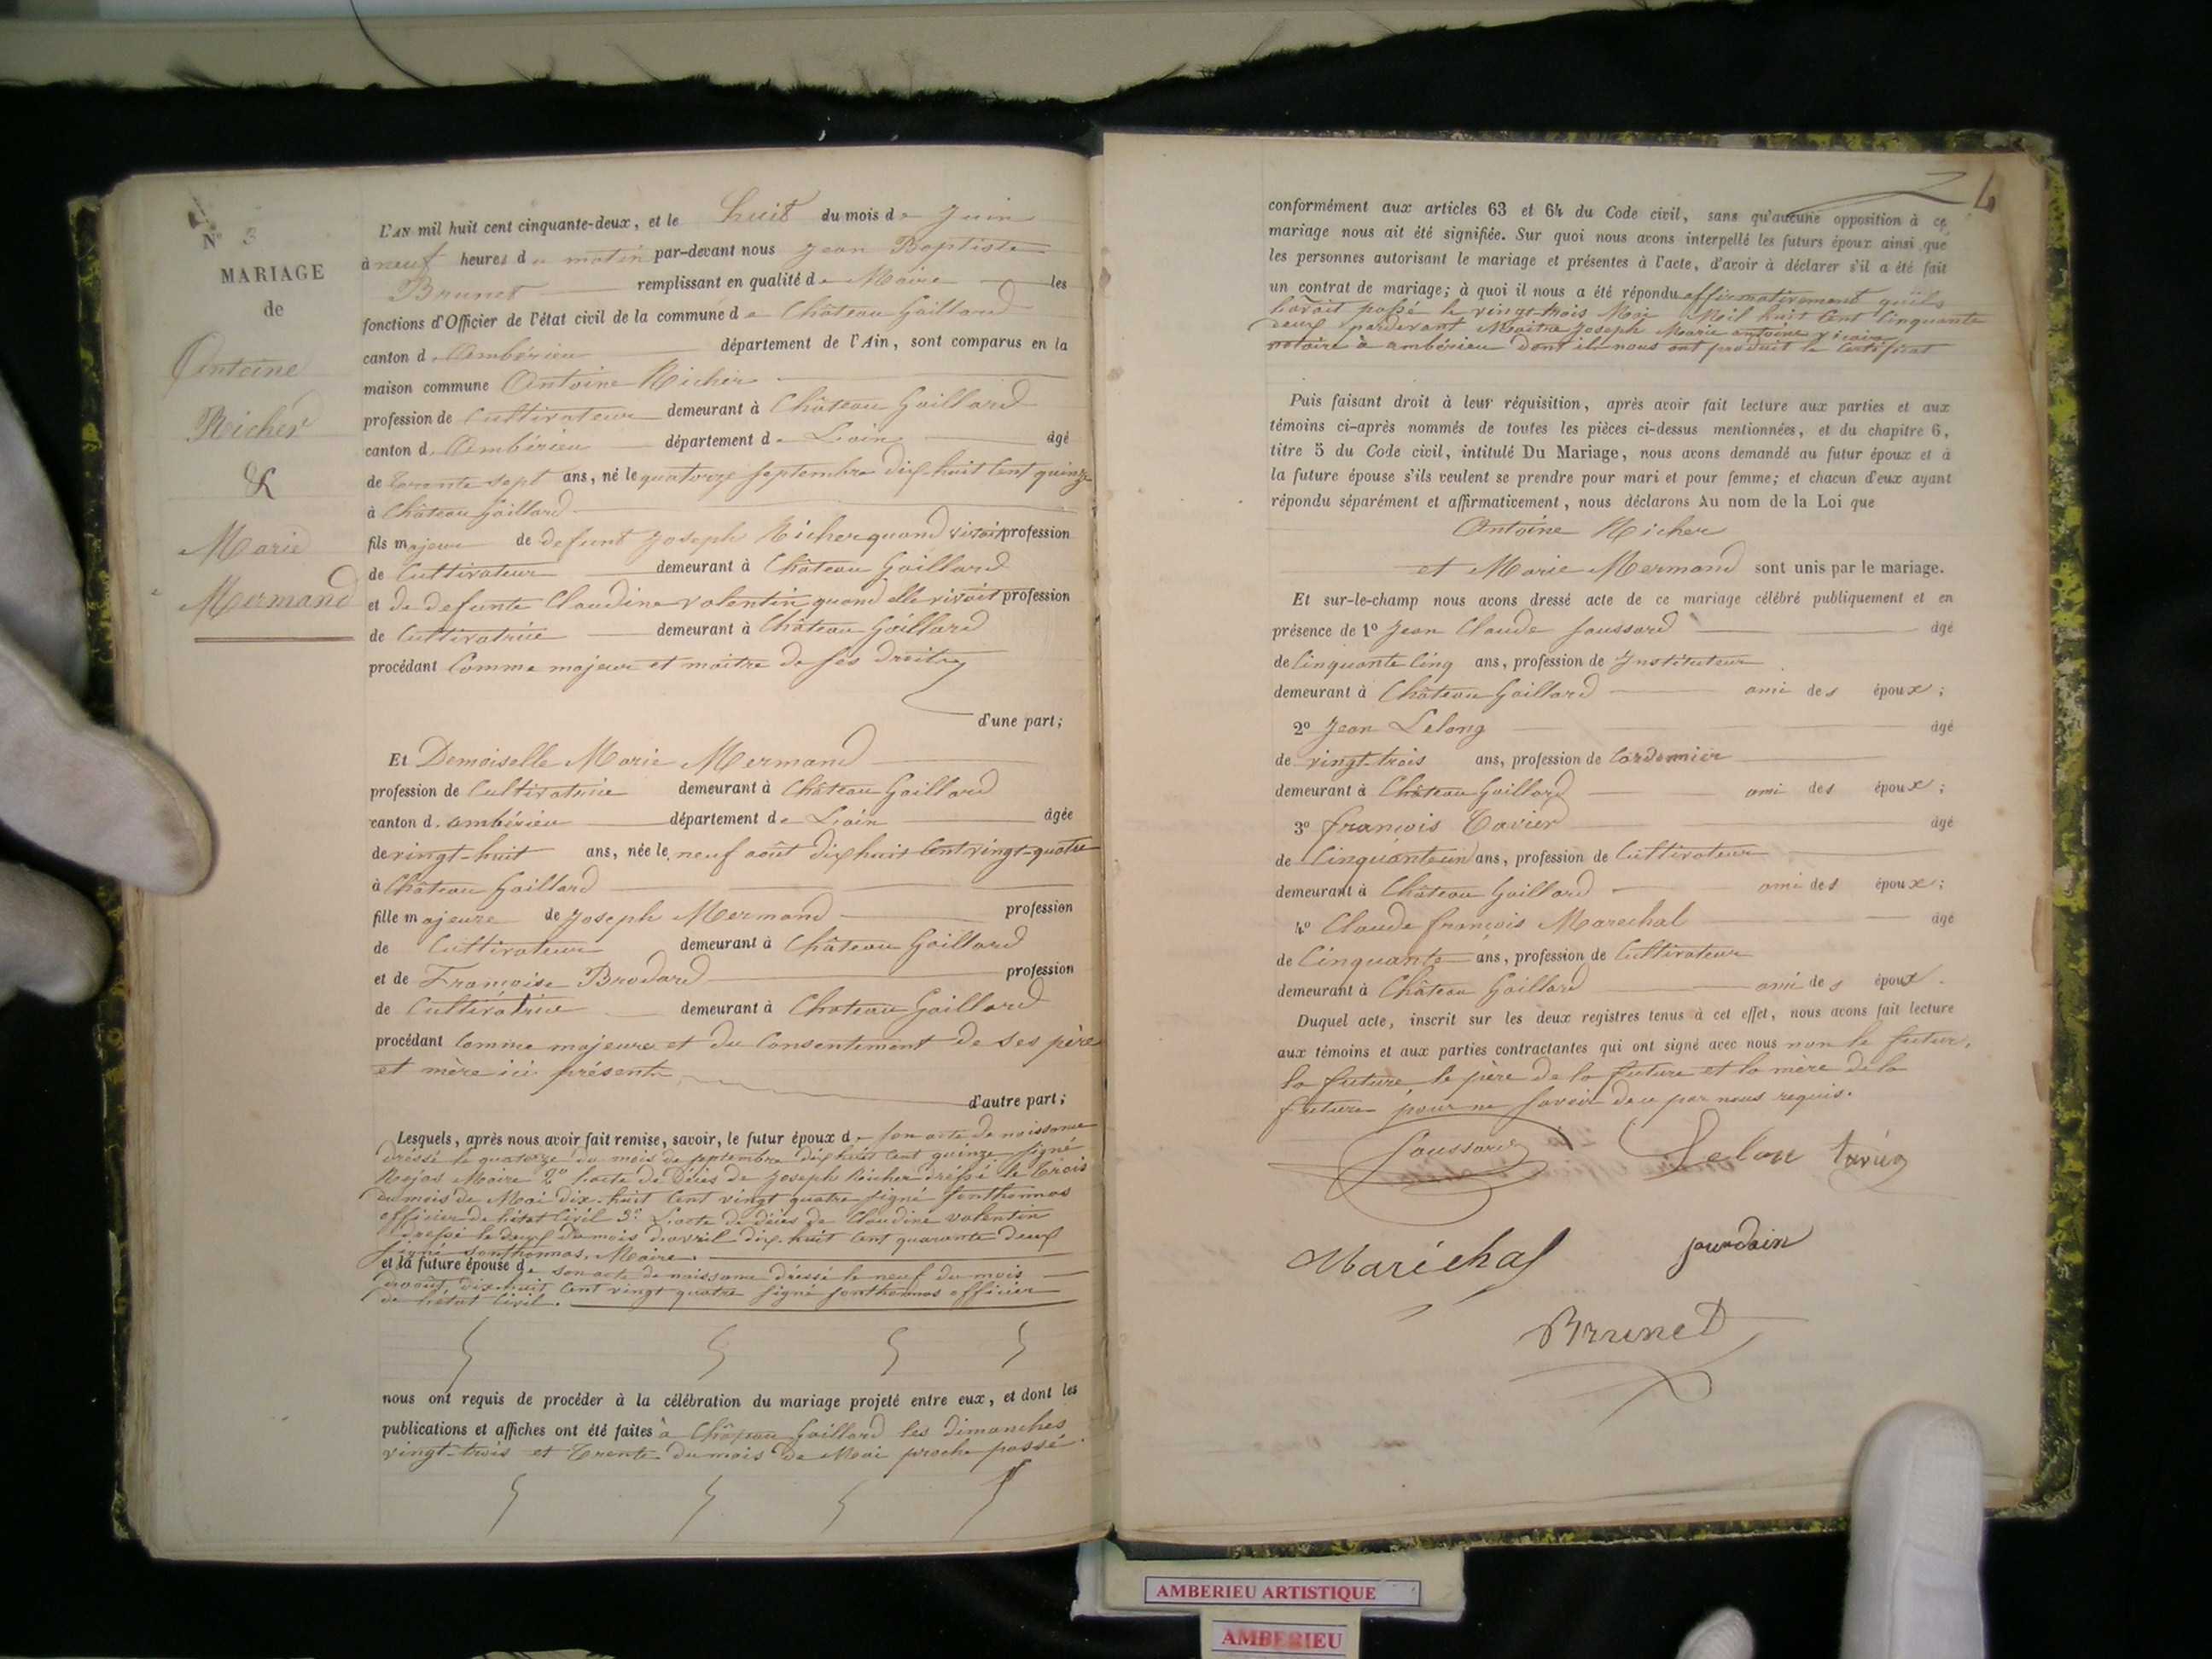 N° 3
MARIAGE
de
Antoine
Richer
&
Marie
Mermand
L'AN mil huit cent cinquante-deux, et le huit du mois de Juin
à neuf heures du matin par-devant nous Jean Baptiste
Brunet remplissant en qualité de Maire les
fonctions d'Officier de l'état civil de la commune de Château Gaillard
canton d'Ambérieu département de l'Ain, sont comparus en la
maison commune Antoine Richer
profession de Cultivateur demeurant à Château Gaillard
canton d. Ambérieu département de L'ain âgé
de trente sept ans, né le quatorze septembre dix huit cent quinze
à Château Gaillard
fils majeur de defunt Joseph Richer quand vivait profession
de Cultivateur demeurant à Château Gaillard
et de defunte Claudine valentin quand elle vivait profession
de Cultivatrice demeurant à Château Gaillard
procédant Comme majeur et maitre de ses droits
d'une part;
Et Demoiselle Marie Mermand
profession de Cultivatrice demeurant à Château Gaillard
canton d. ambérieu département de L'ain âgée
de vingt-huit ans, née le neuf août dix huit cent vingt-quatre
à Château Gaillard
fille majeure de Joseph Mermand profession
de Cultivateur demeurant à Château Gaillard
et de Françoise Brodard profession
de Cultivatrice demeurant à Chateau Gaillard
procédant Comme majeure et du Consentement de ses père
et mère ici présents
d'autre part;
Lesquels, après nous avoir fait remise, savoir, le futur époux de son acte de naissance
dréssé le quatorze du mois de septembre dix huit cent quinze signé
Réjas Maire 2° L'acte de Décès de Joseph Richer dréssé le trois
du mois de Mai dix-huit cent vingt quatre signé Jonthonnas
officier de l'état Civil 3° L'acte de décès de Claudine valentin
dressé le deux du mois d'avril dix huit cent quarante deux
signé Jonthonnas, Maire.
et la future épouse de son acte de naissance dréssé le neuf du mois
d'août dix-huit cent vingt quatre signé Jonthonnas officier
de l'état Civil.
nous ont requis de procéder à la célébration du mariage projeté entre eux, et dont les
publications et affiches ont été faites à Château Gaillard les dimanches
vingt-trois et trente du mois de Mai proche passé
conformément aux articles 63 et 64 du Code civil, sans qu'aucune opposition à ce
mariage nous ait été signifiée. Sur quoi nous avons interpellé les futurs époux ainsi que
les personnes autorisant le mariage et présentes à l'acte, d'avoir à déclarer s'il a été fait
un contrat de mariage; à quoi il nous a été répondu affirmativement qu'ils
l'avait passé le vingt-trois Mai Mil huit Cent Cinquante
deux pardevant Maitre Joseph Marie antoine vicaire
notaire à ambérieu dont ils nous ont produit le Certificat
Puis faisant droit à leur réquisition, après avoir fait lecture aux parties et aux
témoins ci-après nommés de toutes les pièces ci-dessus mentionnées, et du chapitre 6,
titre 5 du Code civil, intitulé Du Mariage, nous avons demandé au futur époux et à
la future épouse s'ils veulent se prendre pour mari et pour femme; et chacun d'eux ayant
répondu séparément et affirmativement, nous déclarons Au nom de la Loi que
Antoine Richer
et Marie Mermand sont unis par le mariage.
Et sur-le-champ nous avons dressé acte de ce mariage célébré publiquement et en
présence de 1° Jean Claude Joussard âgé
de Cinquante Cinq ans, profession de Instituteur
demeurant à Château Gaillard ami des époux;
2° Jean Lelong âgé
de vingt-trois ans, profession de Cordonnier
demeurant à Château Gaillard ami des époux;
3° françois Tavier âgé
de Cinquante un ans, profession de Cultivateur
demeurant à Château Gaillard ami des époux;
4° Claude françois Marechal âgé
de Cinquante ans, profession de Cultivateur
demeurant à Château Gaillard ami des époux.
Duquel acte, inscrit sur les deux registres tenus à cet effet, nous avons fait lecture
aux témoins et aux parties contractantes qui ont signé avec nous non le futur,
la future, le père de la future et la mère de la
future pour ne savoir de ce par nous requis.
Joussard Lelon
Maréchal Jourdain
Brunet
AMBERIEU ARTISTIQUE
AMBERIEU